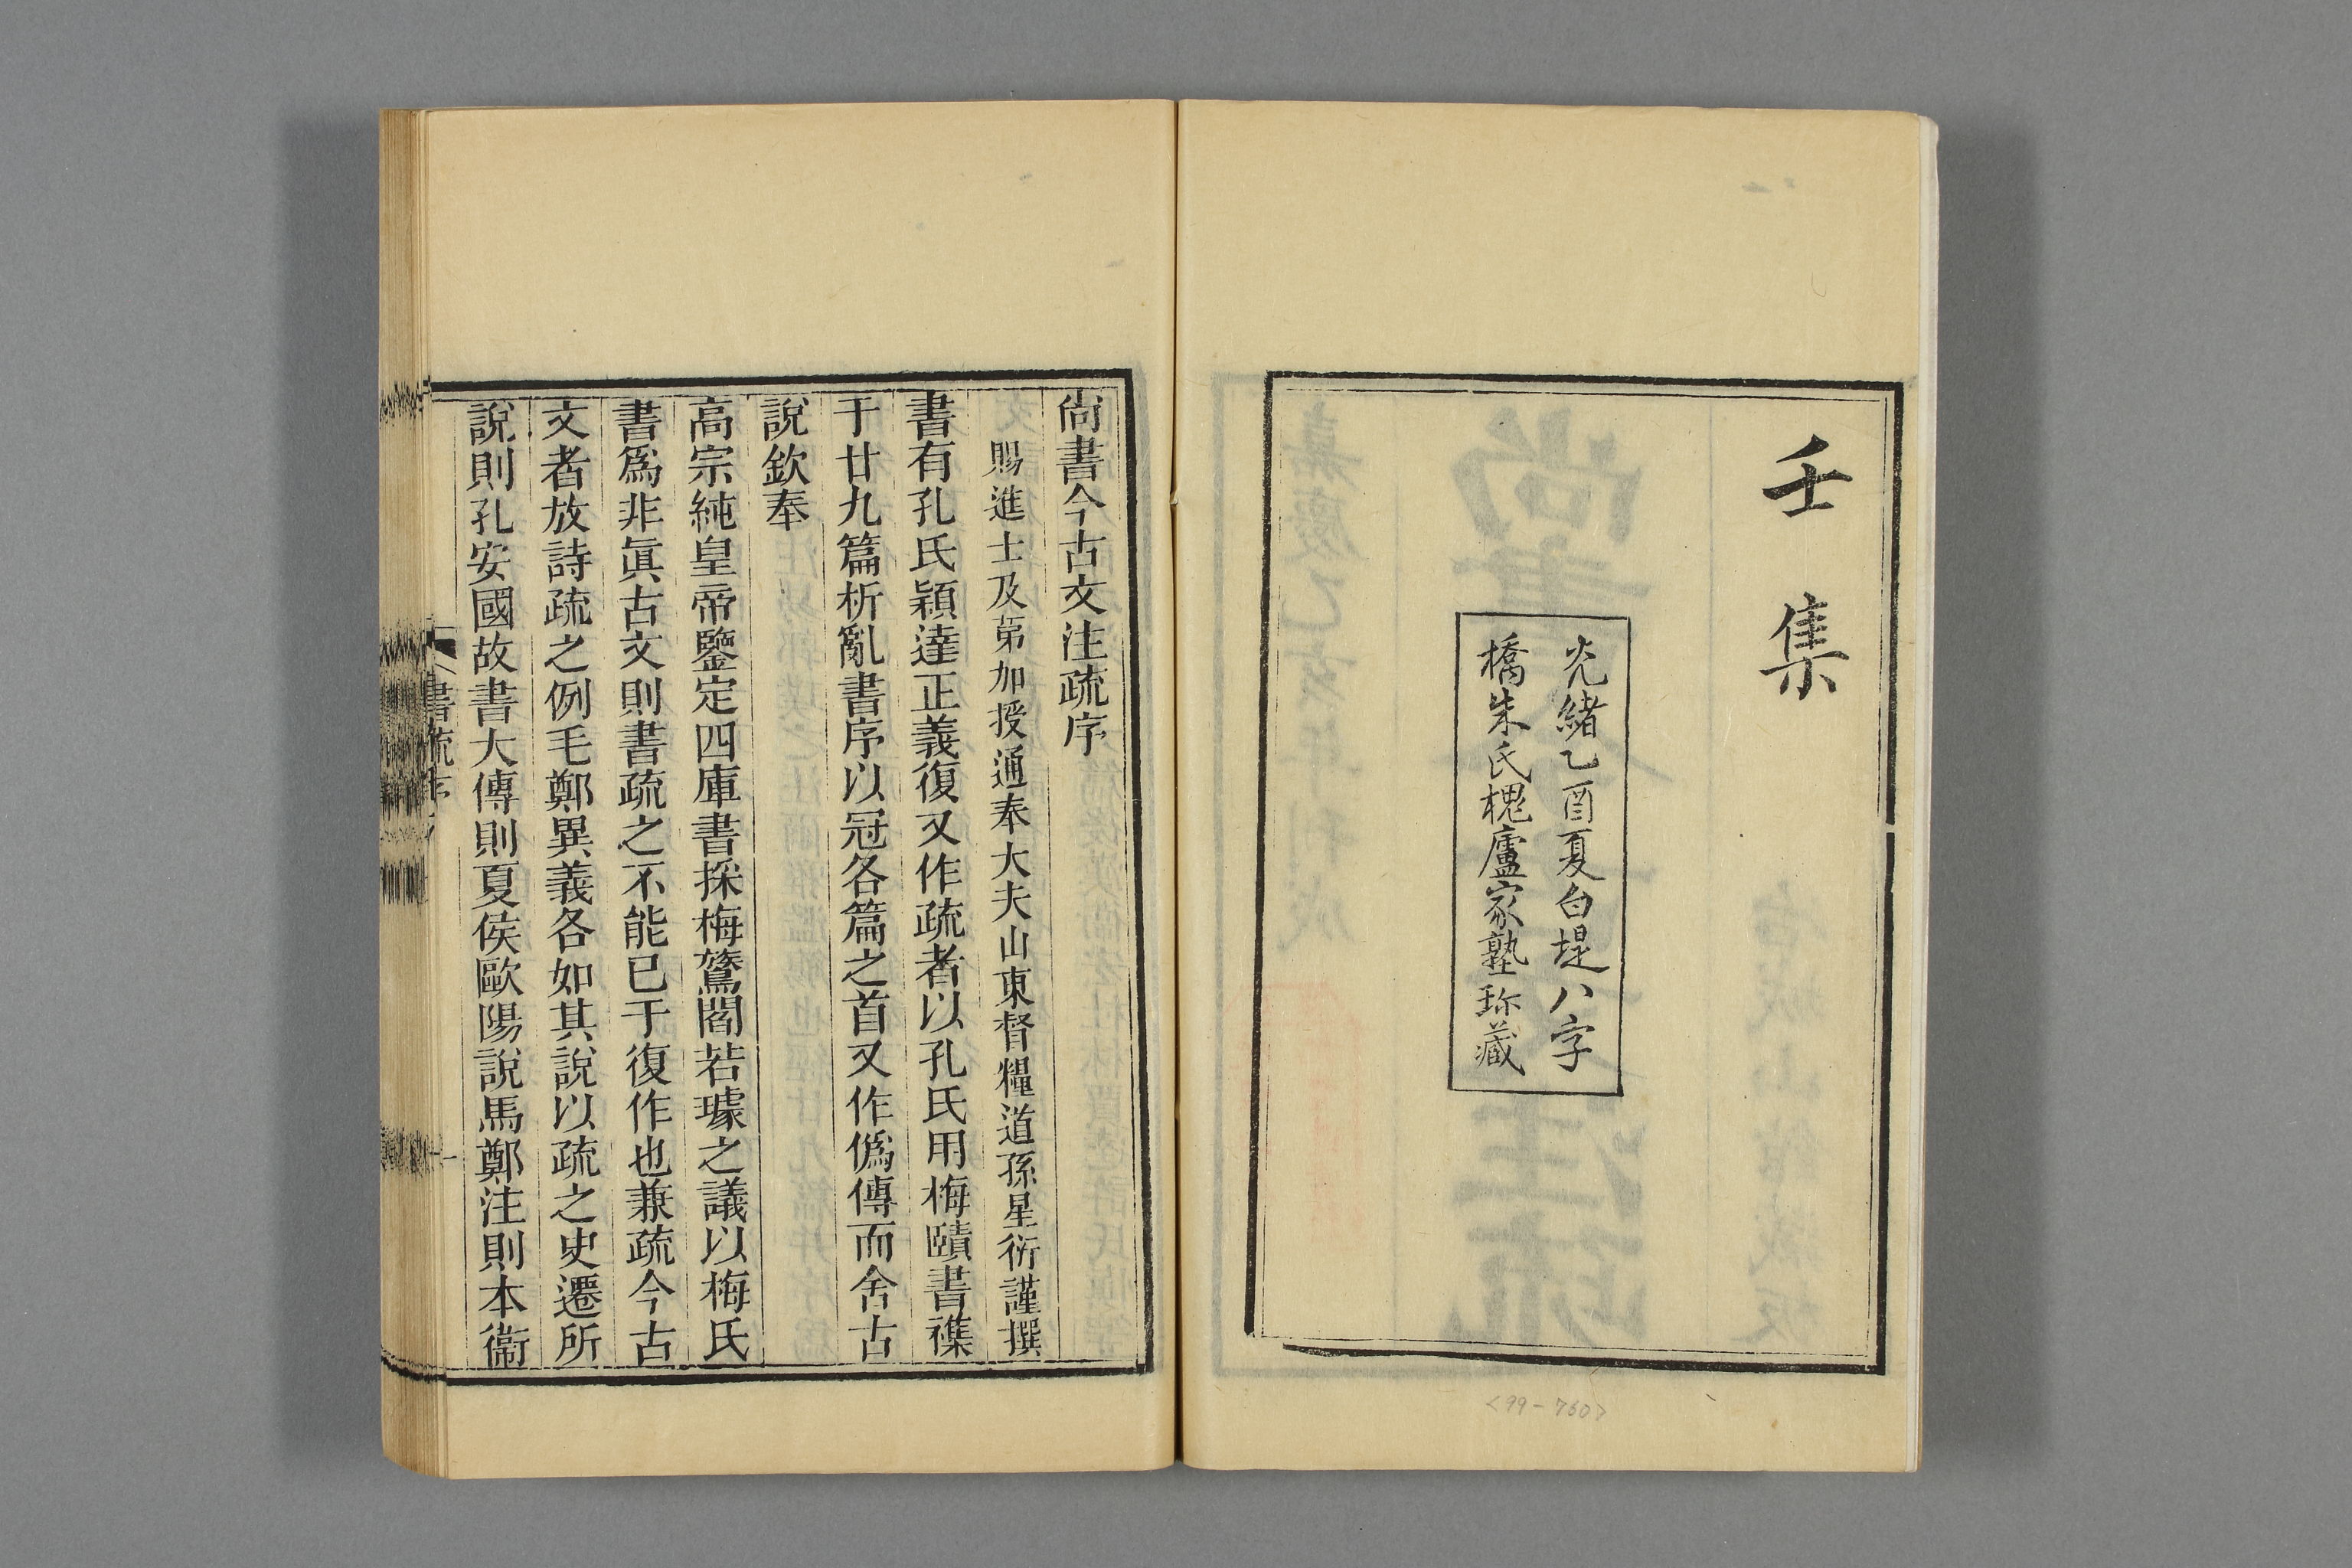 壬集
光緒乙酉夏白堤八字
橋朱氏槐廬家塾珎藏
<99-760>
尙書今古文注疏序
賜進士及第加授通奉大夫山東督糧道孫星衍謹撰
書有孔氏穎達正義復又作疏者以孔氏用梅賾書襍
于廿九篇析亂書序以冠各篇之首又作僞傳而舍古
說欽奉
高宗純皇帝鑒定四庫書採梅鷟閻若璩之議以梅氏
書爲非眞古文則書疏之不能已于復作也兼疏今古
文者放詩疏之例毛鄭異義各如其說以疏之史遷所
說則孔安國故書大傳則夏侯歐陽說馬鄭注則本衞
書疏序
一